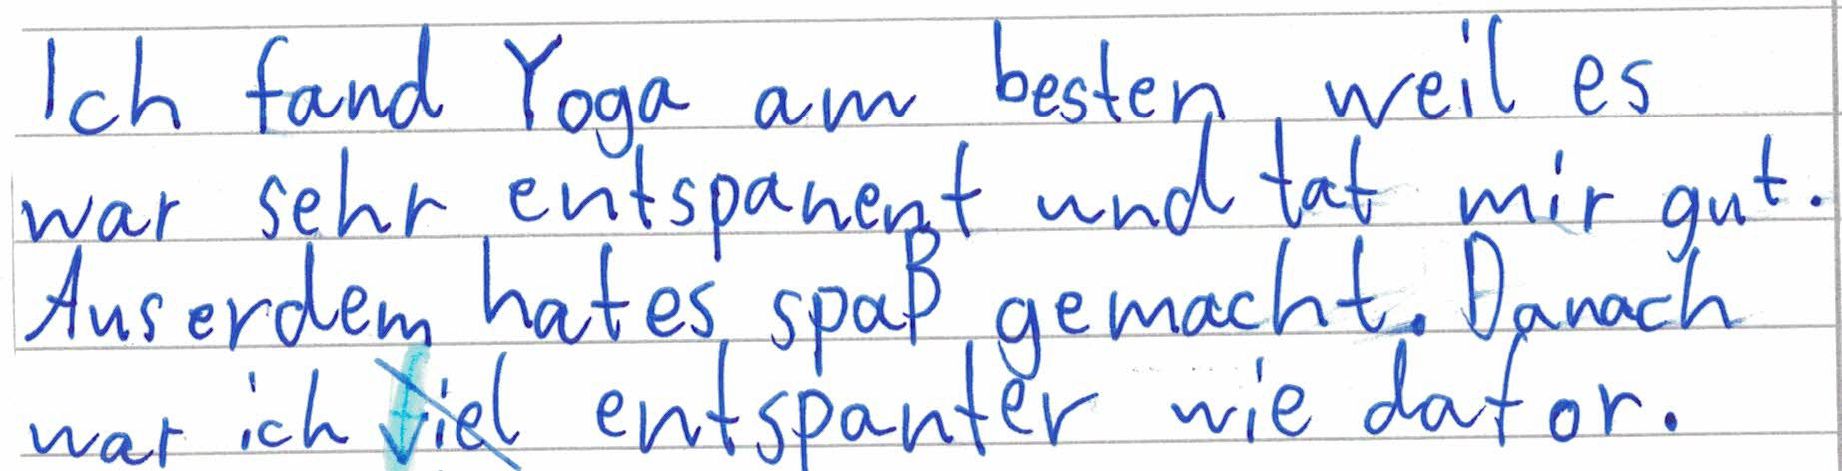 Ich fand Yoga am besten weil es
war sehr entspanent und tat mir gut.
Auserdem hat es spaß gemacht. Danach
war ich viel entspanter wie dafor.